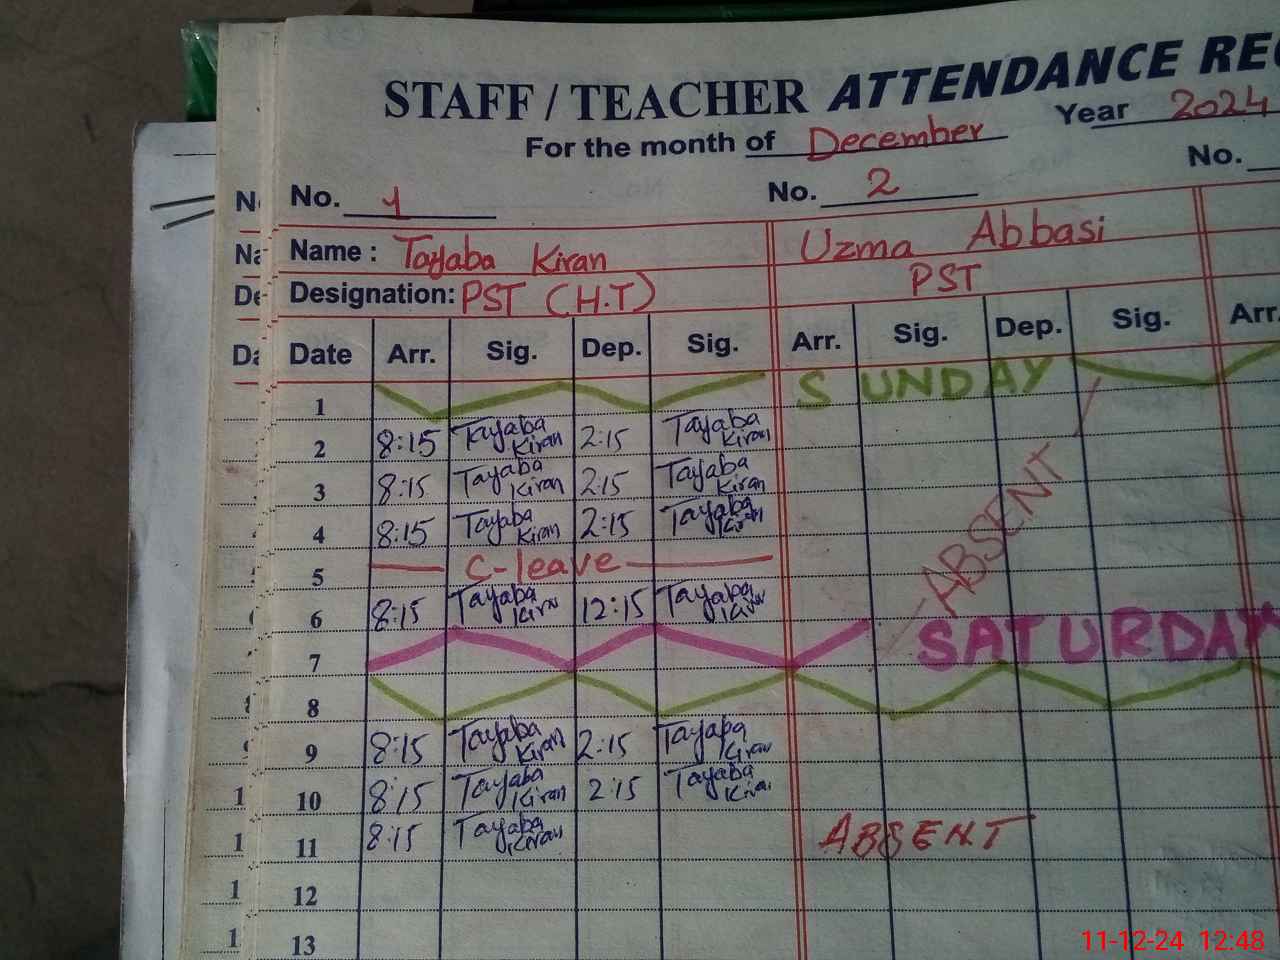 STAFF / TEACHER ATTENDANCE REC
For the month of December Year 2024
No. 1 No. 2 No.
Name : Tayaba Kiran Uzma Abbasi
Designation: PST (H.T) PST
Date Arr. Sig. Dep. Sig. Arr. Sig. Dep. Sig. Arr.
1 SUNDAY
2 8:15 Tayaba Kiran 2:15 Tayaba Kiran
3 8:15 Tayaba Kiran 2:15 Tayaba Kiran
4 8:15 Tayaba Kiran 2:15 Tayaba Kiran
ABSENT
5 C-leave
6 8:15 Tayaba Kiran 12:15 Tayaba Kiran
7 SATURDAY
8
9 8:15 Tayaba Kiran 2:15 Tayaba Kiran
10 8:15 Tayaba Kiran 2:15 Tayaba Kiran
11 8:15 Tayaba Kiran ABSENT
12
13
11-12-24 12:48